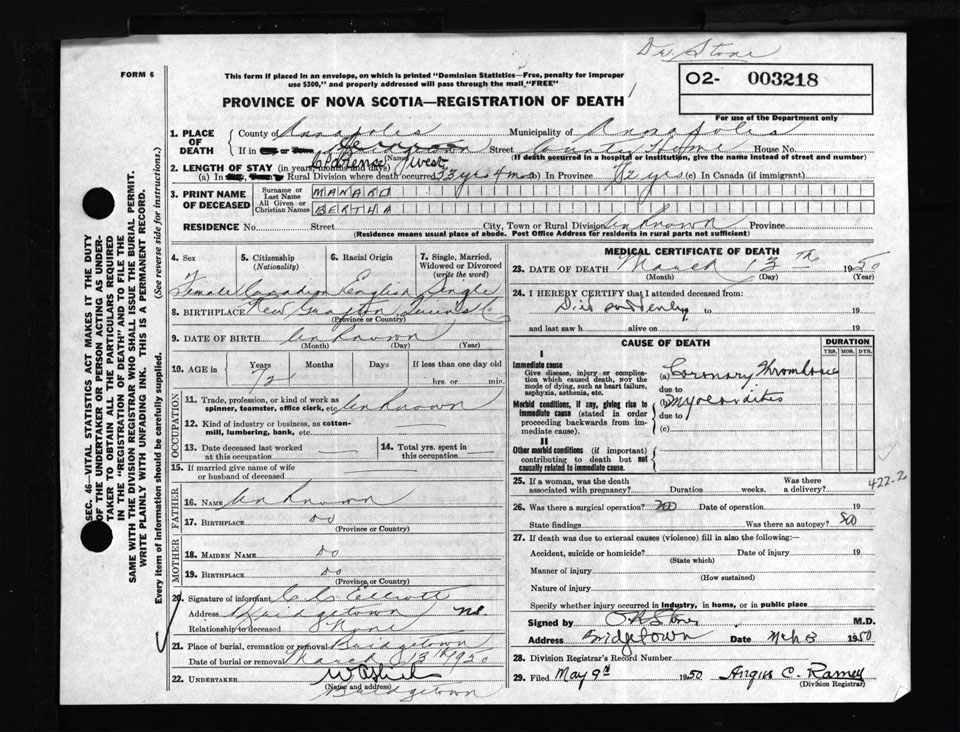 Dr Stone
FORM 6
This form if placed in an envelope, on which is printed "Dominion Statistics—Free, penalty for improper
use $300," and properly addressed will pass through the mail "FREE"
02- 003218
PROVINCE OF NOVA SCOTIA—REGISTRATION OF DEATH
For use of the Department only
1. PLACE OF DEATH
County of Annapolis Municipality of Annapolis
If in Bridgetown Street County Home House No.
(Name) (If death occurred in a hospital or institution, give the name instead of street and number)
Clarence West
2. LENGTH OF STAY (in years, months and days)
(a) In Rural Division where death occurred 33 yrs 4 mos (b) In Province 72 yrs (c) In Canada (if immigrant)
3. PRINT NAME OF DECEASED
Surname or Last Name MANARD
All Given or Christian Names BERTHA
RESIDENCE No. Street City, Town or Rural Division unknown Province
(Residence means usual place of abode. Post Office Address for residents in rural parts not sufficient)
4. Sex 5. Citizenship (Nationality) 6. Racial Origin 7. Single, Married, Widowed or Divorced (write the word)
Female Canadian English Single
8. BIRTHPLACE New Grafton Queens Co
(Province or Country)
9. DATE OF BIRTH unknown
(Month) (Day) (Year)
10. AGE in Years Months Days If less than one day old
72 hrs. or min.
OCCUPATION
11. Trade, profession, or kind of work as
spinner, teamster, office clerk, etc. unknown
12. Kind of industry or business, as cotton-
mill, lumbering, bank, etc.
13. Date deceased last worked at this occupation
14. Total yrs. spent in this occupation
15. If married give name of wife
or husband of deceased
FATHER
16. NAME unknown
17. BIRTHPLACE do
(Province or Country)
MOTHER
18. MAIDEN NAME do
19. BIRTHPLACE do
(Province or Country)
20. Signature of informant C. C. Elliott
Address Bridgetown NS.
Relationship to deceased None
21. Place of burial, cremation or removal Bridgetown
Date of burial or removal March 13th 1950
22. UNDERTAKER
(Name and address)
Bridgetown
MEDICAL CERTIFICATE OF DEATH
23. DATE OF DEATH March 13th 1950
(Month) (Day) (Year)
24. I HEREBY CERTIFY that I attended deceased from
Died suddenly to 19
and last saw h alive on 19
CAUSE OF DEATH DURATION
YRS. MOS. DYS.
I
Immediate cause
Give disease, injury or complica-
tion which caused death, not the
mode of dying, such as heart failure,
asphyxia, asthenia, etc.
(a) Coronary Thrombosis
due to
Morbid conditions, if any, giving rise to
immediate cause (stated in order
proceeding backwards from im-
mediate cause).
(b) Myocarditis
due to
(c)
II
Other morbid conditions (if important)
contributing to death but not
causally related to immediate cause.
422.2
25. If a woman, was the death
associated with pregnancy? Duration weeks. Was there a delivery?
26. Was there a surgical operation? no Date of operation 19
State findings Was there an autopsy? no
27. If death was due to external causes (violence) fill in also the following:—
Accident, suicide or homicide? Date of injury 19
(State which)
Manner of injury
(How sustained)
Nature of injury
Specify whether injury occurred in industry, in home, or in public place
Signed by Stone M.D.
Address Bridgetown Date Mch 13 1950
28. Division Registrar's Record Number
29. Filed May 9th 1950 Angus C. Ramey
(Division Registrar)
SEC. 46—VITAL STATISTICS ACT MAKES IT THE DUTY
OF THE UNDERTAKER OR PERSON ACTING AS UNDER-
TAKER TO OBTAIN ALL THE PARTICULARS REQUIRED
IN THE "REGISTRATION OF DEATH" AND TO FILE THE
SAME WITH THE DIVISION REGISTRAR WHO SHALL ISSUE THE BURIAL PERMIT.
WRITE PLAINLY WITH UNFADING INK. THIS IS A PERMANENT RECORD.
Every item of information should be carefully supplied. (See reverse side for instructions.)